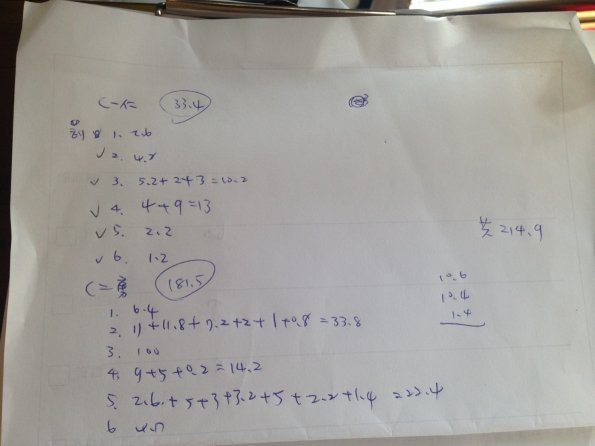 33.4
1. 2.6
✓ 2. 4.2
✓ 3. 5.2+2+3=10.2
✓ 4. 4+9=13
✓ 5. 2.2
✓ 6. 1.2
共 214.9
181.5
10.6
10.4
1.4
1. 6.4
2. 11+11.8+7.2+2+1+0.8=33.8
3. 100
4. 9+5+0.2=14.2
5. 2.6+5+3+3.2+5+2.2+1.4=22.4
6 4.7